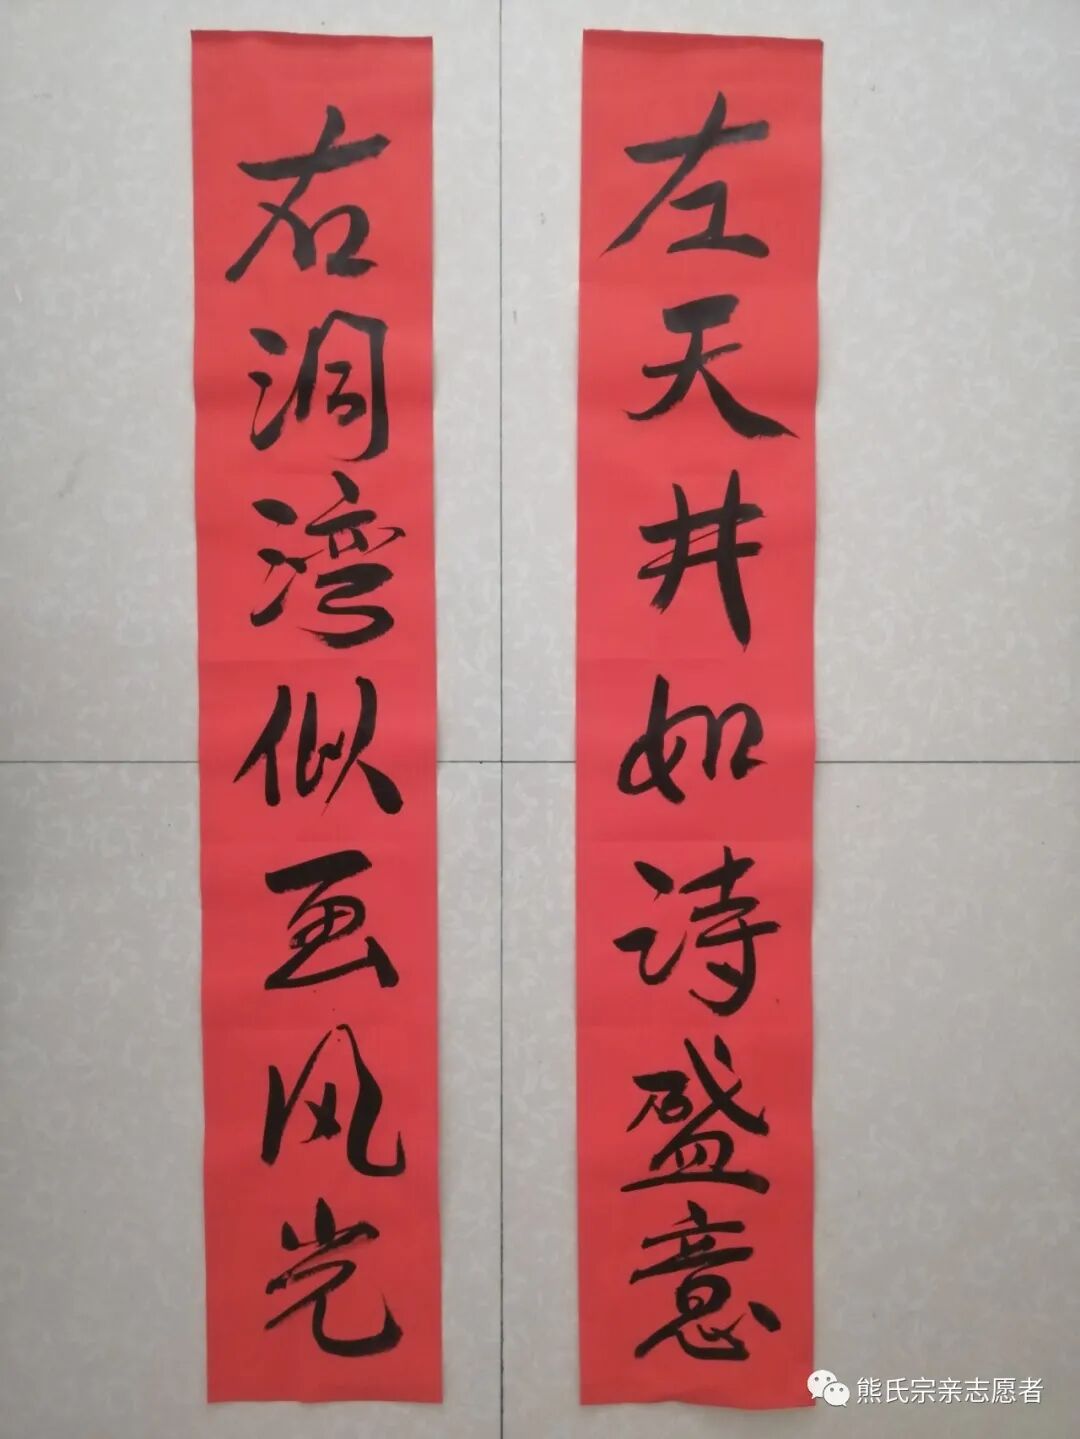 左天井如诗盛意
右洞湾似画风光
熊氏宗亲志愿者